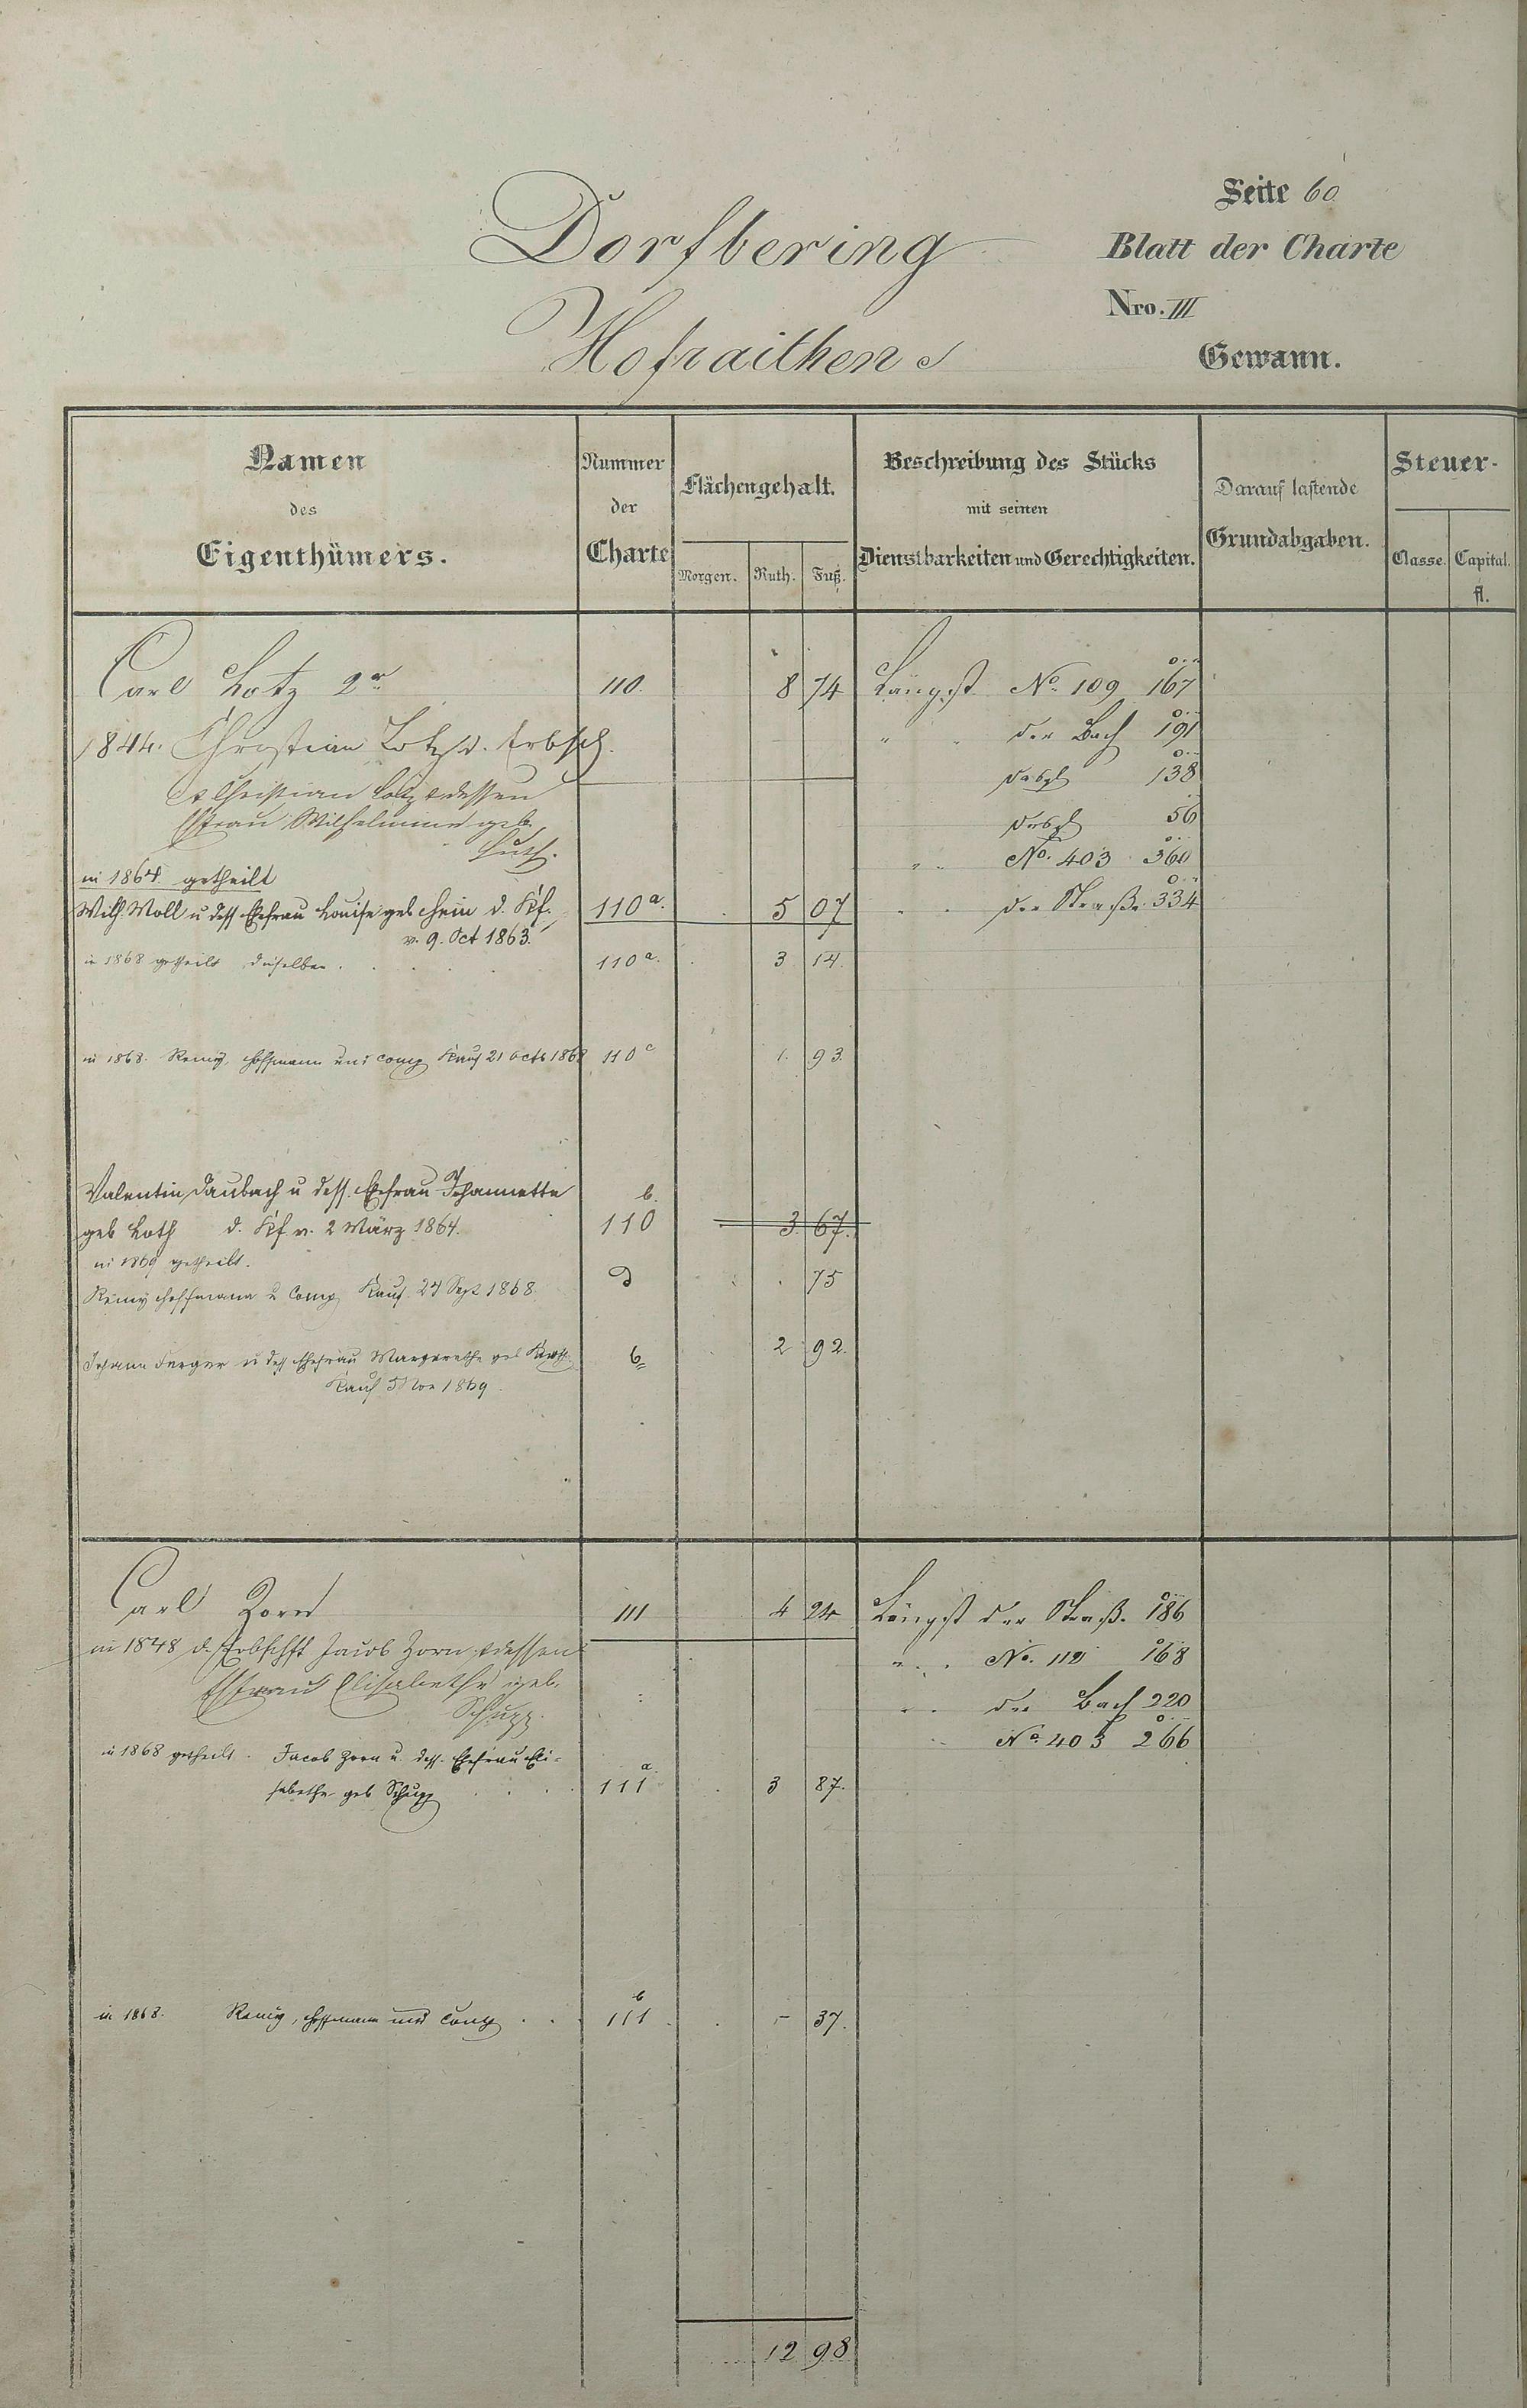 Seite 60
Dorfbering
Blatt der Charte
Nro. III
Hofraithen
Gewann.
Namen des Eigenthümers.
Nummer der Charte
Flächengehalt.
Morgen. Ruth. Fuß.
Beschreibung des Stücks mit seinen Dienstbarkeiten und Gerechtigkeiten.
Darauf lastende Grundabgaben.
Steuer-
Classe. Capital. fl.
Carl Lotz 2r 110. 8 74 Längst No. 109 167
1844. Christian Lotz d. Erbsch. " der Bach 191
desgl 138
Christian Lotz & dessen
Efrau Wilhelmine geb. desgl 56
Huth. " No. 403 360
in 1864. getheilt
Wilh. Moll u dess Ehefrau Louise geb Hein d. Kf. 110a. 5 07 " der Straße 334
v. 9. Oct 1863.
in 1868 getheilt dieselben. 110a. 3 14.
in 1868. Remy, Hoffmann und Comp Kauf 21 Octb 1868 110c 1. 93.
Valentin Daubach u dess. Ehefrau Johannette b.
geb Loth d. Kf v. 2 März 1864. 110 3. 67.
in 1869 getheilt.
Remy Hoffmann u Comp Kauf 24 Sept 1868. d 75
Johann Ferger u dess Ehefrau Margarethe geb b 2 92.
Kauf 5 Nov 1869.
Carl Zorn 111 4 24 Längst der Straß. 186
in 1848 d. Erbschft Jacob Zorn & dessen " No. 110 168
Efrau Elisabethe geb.
Schupp. " der Bach 220
No. 403 266
in 1868 getheilt. Jacob Zorn u. dess. Ehefrau Eli-
sabethe geb Schupp 111a 3 87.
in 1868. Remy, Hoffmann und Comp 111b - 37.
12 98